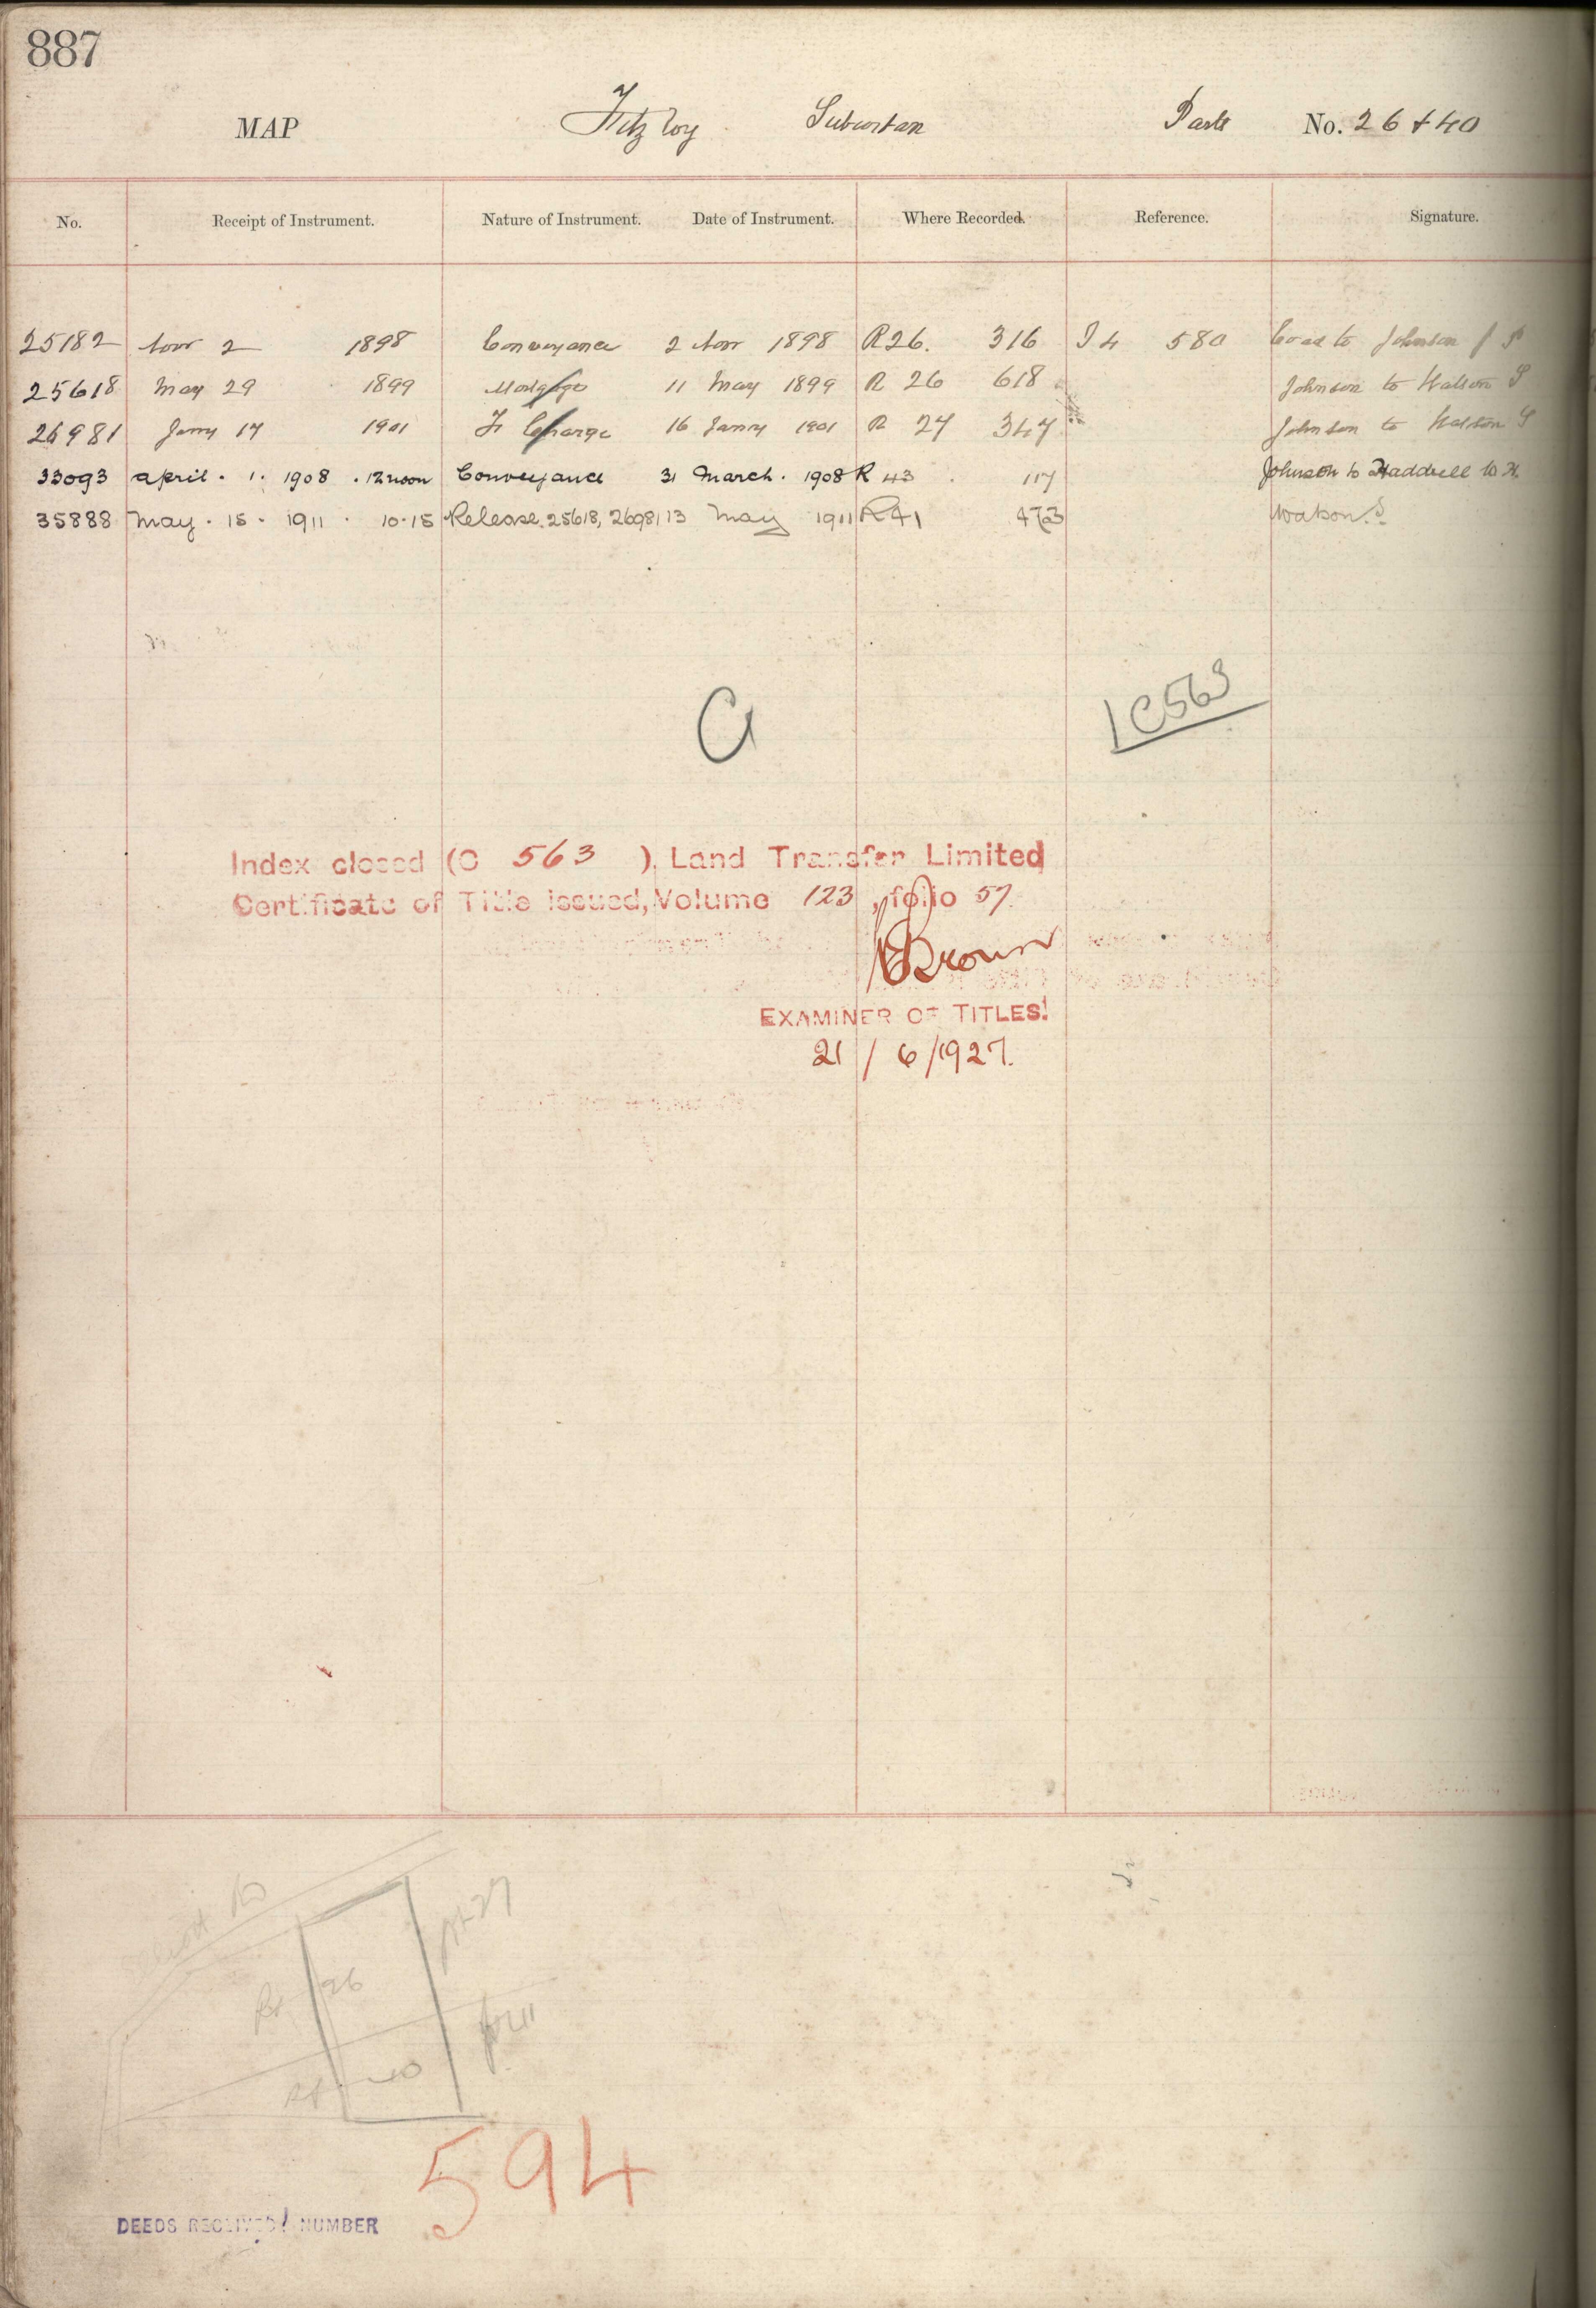 887
MAP Fitzroy Suburban Parts No. 26 + 40
No. Receipt of Instrument. Nature of Instrument. Date of Instrument. Where Recorded. Reference. Signature.
25182 Novr 2 1898 Conveyance 2 Novr 1898 R26. 316 I 4 580 Coad to Johnson
25618 May 29 1899 Mortgage 11 May 1899 R 26 618 Johnson to Watson S
26981 Janry 17 1901 Fr Charge 16 Janry 1901 R 27 347 Johnson to Watson S
33093 April. 1. 1908. 12 noon Conveyance 31 March. 1908 R 43 117 Johnson to Haddrell W. H.
35888 May. 15. 1911. 10.15 Release. 25618, 26981 13 May 1911 R41 473 Watson. S.
C
C563
Index closed (C 563 ), Land Transfer Limited
Certificate of Title issued, Volume 123, folio 57.
Brown
EXAMINER OF TITLES.
21/6/1927.
Pt 27
Pt 26
Pt 41
Pt 40
594
DEEDS RECEIVED NUMBER